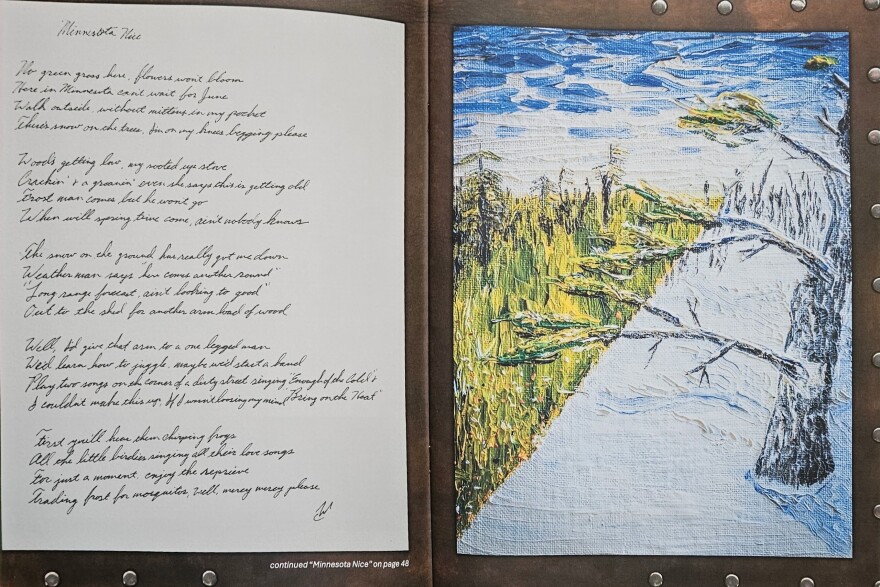 Minnesota Nice
No green grass here, flowers won't bloom
Here in Minnesota can't wait for June
Walk outside, without mittens in my pocket
There's snow on the trees, I'm on my knees begging please
Wood's getting low, my rooted up stove
Crackin' & a groanin' even she says this is getting old
Frost man comes but he wont go
When will spring time come, ain't nobody knows
The snow on the ground has really got me down
Weather man says "here comes another round"
"Long range forecast, ain't looking to good"
Out to the shed for another arm load of wood
Well, I'd give that arm to a one legged man
We'd learn how to juggle, maybe we'd start a band
Play two songs on the corner of a dirty street singing "Enough of the Cold" &
I couldn't make this up, if I wasn't loosing my mind "Bring on the Heat"
First you'll hear them chirping frogs
All the little birdies singing all their love songs
For just a moment, enjoy the reprieve
Trading frost for mosquitos, well, mercy mercy please
continued "Minnesota Nice" on page 48